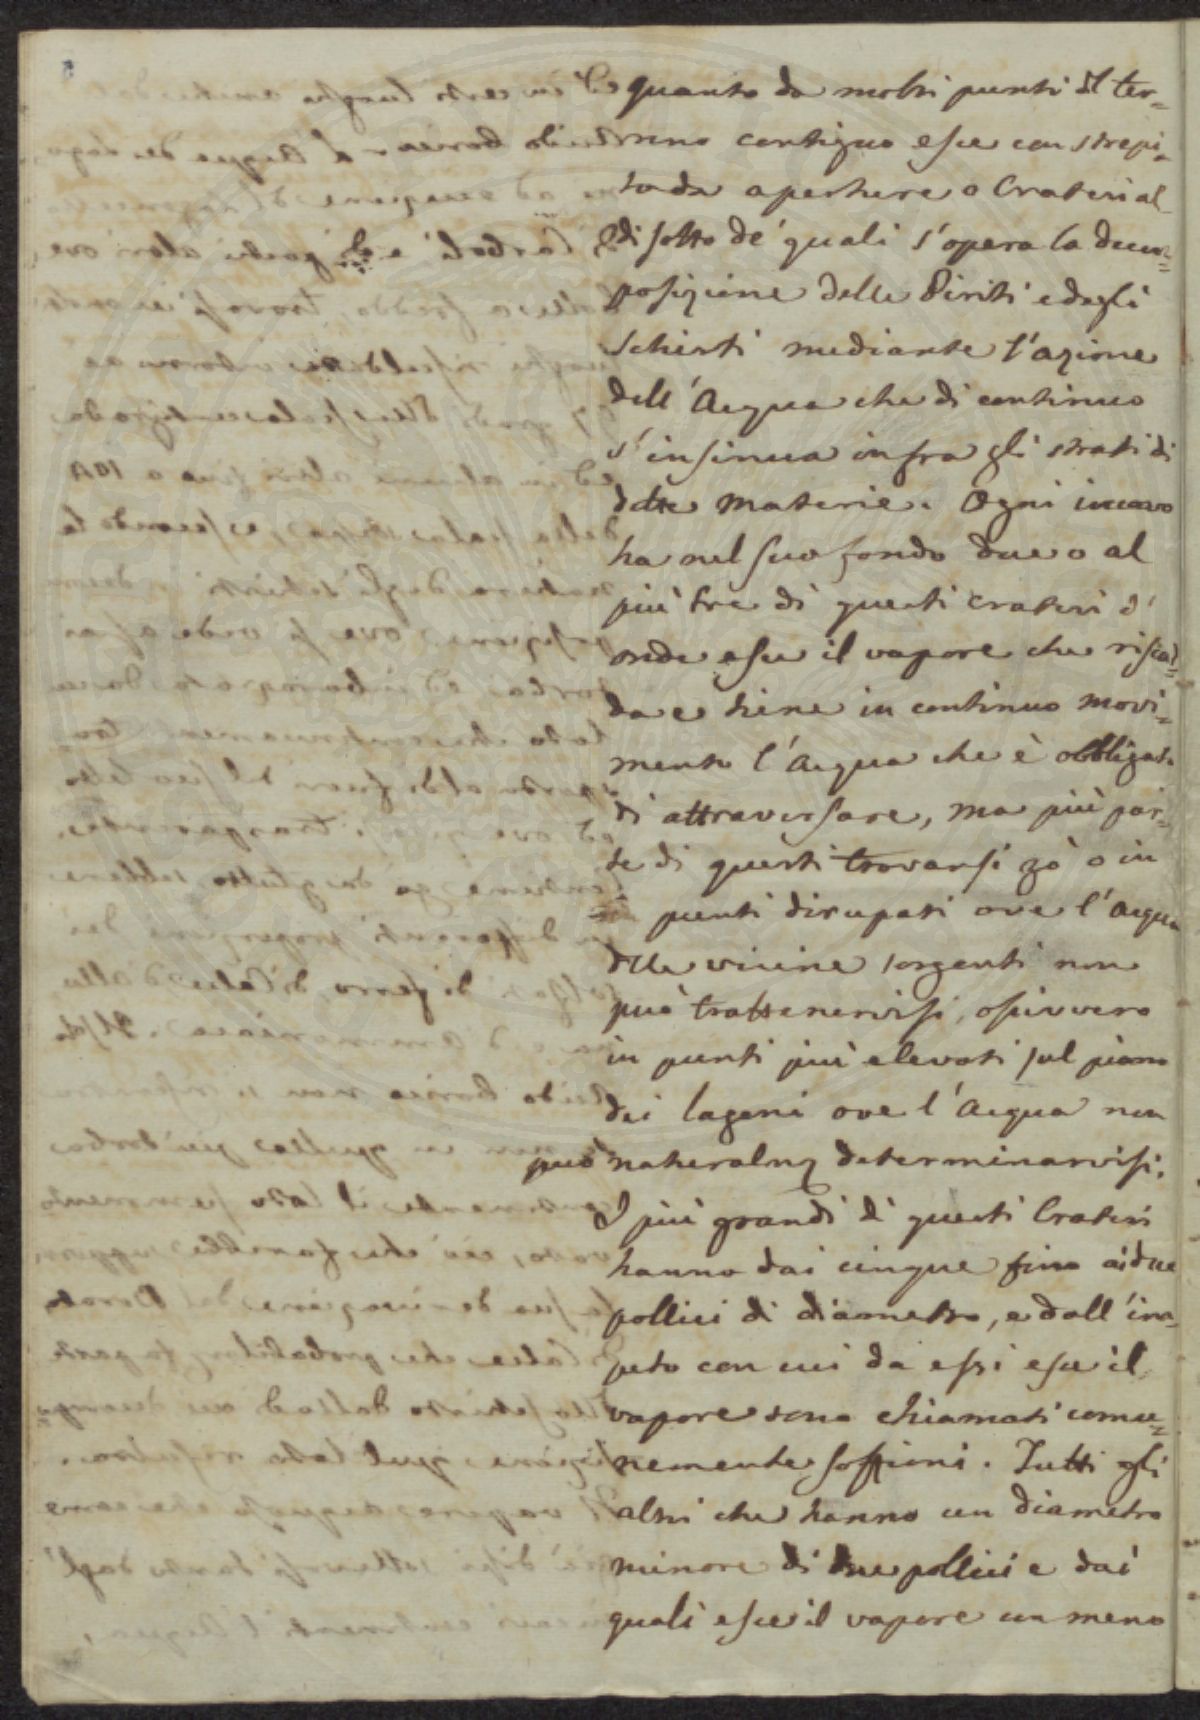 quanto da molti punti del ter=
reno contiguo esce con strepi=
to da aperture o Crateri al
di sotto de' quali s'opera la decom=
posizione delle Piriti e degli
Schisti mediante l'azione
dell'Acqua che di continuo
s'insinua infra gli strati di
dette materie. Ogni incavo
ha nel suo fondo due o al
più tre di questi crateri d'
onde esce il vapore che riscal=
da e tiene in continuo movi=
mento l'Acqua che è obbligata
di attraversare, ma più par=
te di questi trovansi o in
punti dirupati ove l'Acqua
delle vicine sorgenti non
può trattenervisi, ossivvero
in punti più elevati sul piano
dei lagoni ove l'Acqua non
può naturalmẽ determinarvisi.
I più grandi di questi Crateri
hanno dai cinque fino ai due
pollici di diametro, e dall'im=
peto con cui da essi esce il
vapore sono chiamati comu=
nemente soffioni. Tutti gli
altri che hanno un diametro
minore di due pollici e dai
quali esce il vapore con meno